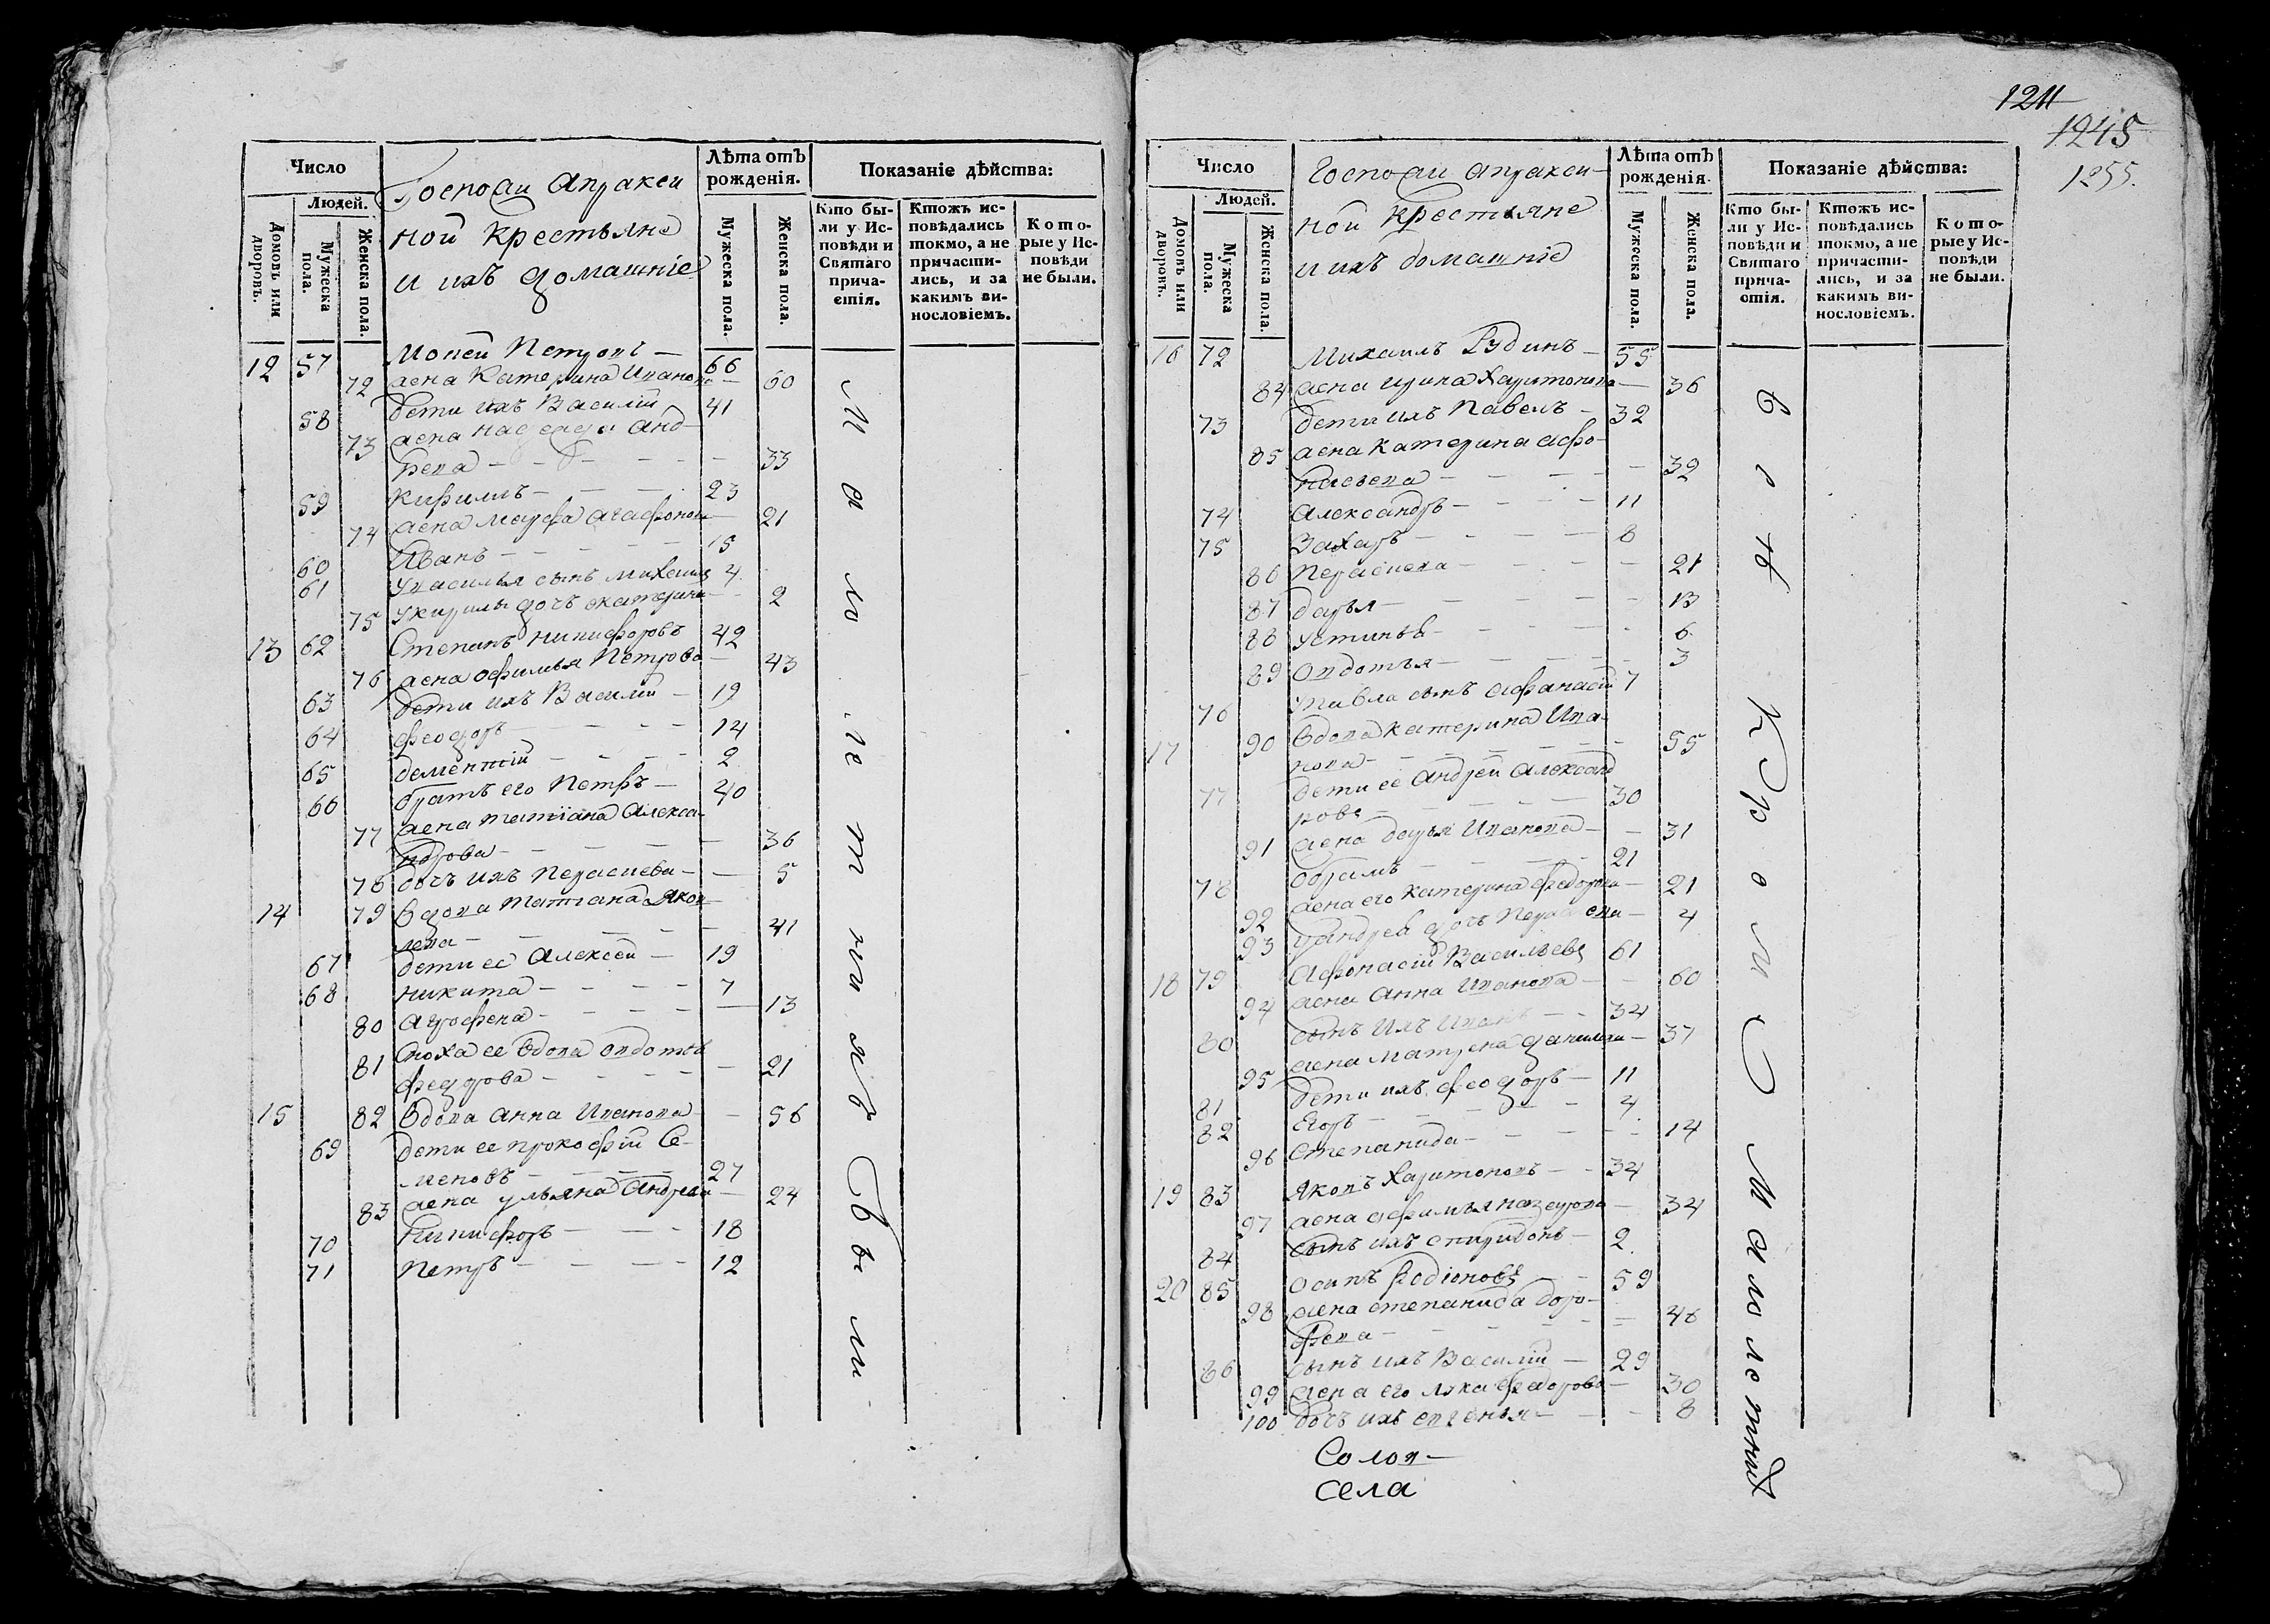 1211
1245
1255.
Число
Людей.
Домовъ или дворовъ.
Мужеска пола.
Женска пола.
Госпожи Апракси
ной крестьяне
и ихъ домашніе
Лѣта отъ рожденія.
Мужеска пола.
Женска пола.
Показаніе дѣйства:
Кто бы-
ли у Ис-
повѣди и
Святаго
прича-
стія.
Ктожъ ис-
повѣдались
токмо, а не
причасти-
лись, и за
какимъ ви-
нословіемъ.
Кото-
рые у Ис-
повѣди
не были.
12 57 Мокей Петровъ — 66
72 жена Катерина Иванова — 60
58 дети ихъ Василій 41
73 жена Анд-
реева — 33
59 Кирилъ — 23
74 жена Марфа Агафонова — 21
60 Иванъ — 15
61 У Василья сынъ Михаилъ 4
75 У Кирилы дочь Екатерина — 2
13 62 Степанъ Никифоровъ 42
76 жена Офимья Петрова — 43
63 дети ихъ Василій — 19
64 Феодоръ — 14
65 Дементій — 2
66 братъ его Петръ — 40
77 жена Татіана Алекса-
ндрова — 36
78 дочь ихъ Параскева — 5
14 79 вдова Татіана Яков
лева — 41
67 дети ее Алексей — 19
68 Никита — 7
80 Агрофена — 13
81 сноха ее вдова Овдотья
Федорова — 21
15 82 вдова Анна Иванова — 56
69 дети ее Прокофій Се-
меновъ — 27
83 жена Ульяна Андреева — 24
70 Никифоръ — 18
71 Петръ — 12
Малолетнихъ Были
Число
Людей.
Домовъ или дворовъ.
Мужеска пола.
Женска пола.
Госпожи Апракси-
ной крестьяне
и ихъ домашніе
Лѣта отъ рожденія.
Мужеска пола.
Женска пола.
Показаніе дѣйства:
Кто бы-
ли у Ис-
повѣди и
Святаго
прича-
стія.
Ктожъ ис-
повѣдались
токмо, а не
причасти-
лись, и за
какимъ ви-
нословіемъ.
Кото-
рые у Ис-
повѣди
не были.
16 72 Михаилъ Рудинъ — 55
84 жена Ирина Харитонова — 36
73 дети ихъ Павелъ — 32
85 жена Катерина Афо-
насьева — 32
74 Александръ — 11
75 Захаръ — 8
86 Параскева — 21
87 Дарья — 13
88 Устинья — 6
89 Овдотья — 3
76 У Павла сынъ Афанасій 7
17 90 вдова Катерина Ива-
нова — 55
77 дети ее Андрей Александ
ровъ — 30
91 жена Дарья Иванова — 31
78 Абрамъ — 21
92 жена его Катерина Федорова — 21
93 У Андрея дочь Параскева — 4
18 79 Афонасій Васильевъ 61
94 жена Анна Иванова — 60
80 сынъ ихъ Иванъ — 34
95 жена Матрена Данилова — 37
81 дети ихъ Феодоръ — 11
82 Егоръ — 4
96 Степанида — 14
19 83 Яковъ Харитоновъ — 34
97 жена Афимья Назарова — 34
84 сынъ ихъ Спиридонъ — 2
20 85 Осипъ Родіоновъ 59
98 жена Степанида Доро-
феева — 48
86 сынъ ихъ Василій — 29
99 жена его Лукья Федорова — 30
100 дочь ихъ Евгенья — 8
Кроме Малолетнихъ
Солов-
села